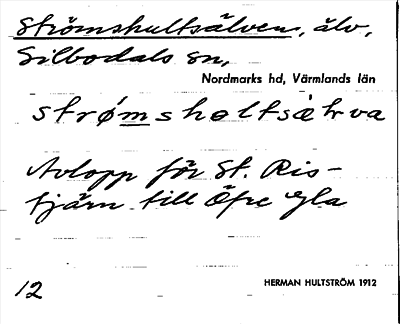 Strömshultsälven, älv,
Silbodals sn,
Nordmarks hd, Värmlands län
strǿmsholtsàlva
Avlopp för St. Ris-
tjärn till Öfre Gla
12
HERMAN HULTSTRÖM 1912